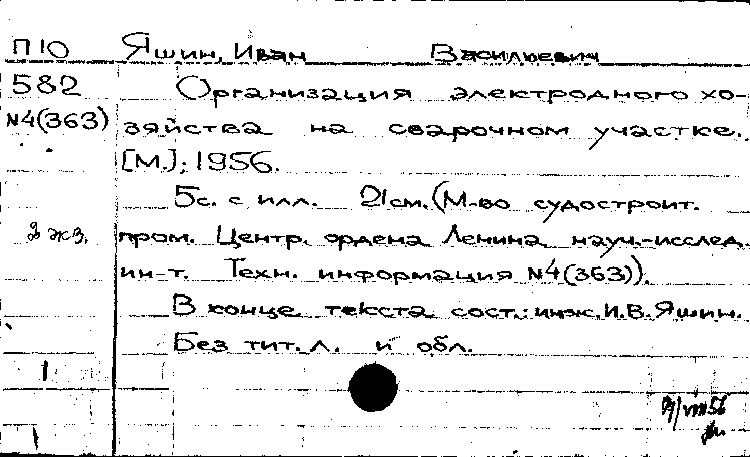 П10 Яшин, Иван Васильевич
582 Организация электродного хо-
N4(363) зяйства на сварочном участке.
[М.], 1956.
5с. с илл. 21см. (М-во судостроит.
2 экз. пром. Центр. ордена Ленина науч.-исслед.
ин-т. Техн. информация N4(363)).
В конце текста сост.: инж. И.В. Яшин.
Без тит. л. и обл.
1
1